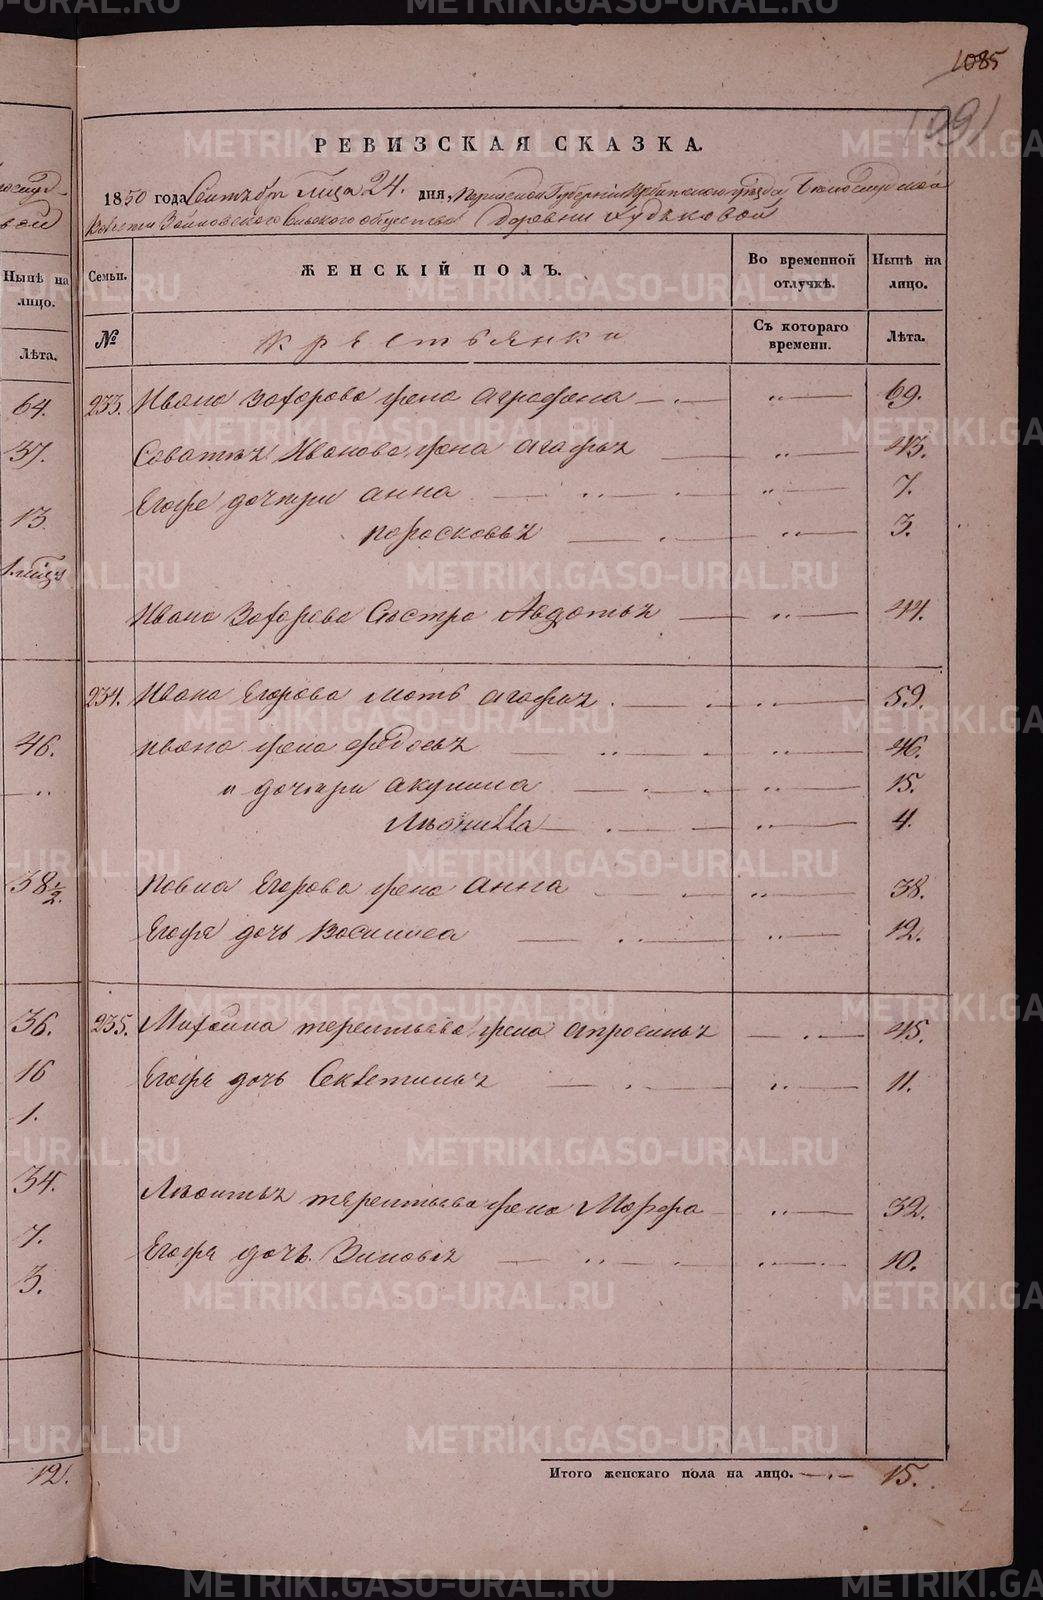 1085
1091
РЕВИЗСКАЯ СКАЗКА.
1850 года Сентября мѣсяца 24. дня, Пермской Губернiи Ирбитскаго уѣзда Бѣлослудской
Волости Зайковскаго Сельскаго общества Деревни Кудьковой
Семьи. ЖЕНСКІЙ ПОЛЪ. Во временной отлучкѣ. Нынѣ на лицо.
№ Крестьянки Съ котораго времени. Лѣта.
233. Ивана Захарова жена Агрофена — " — 69.
Саватѣя Иванова жена Агафья — " — 43.
Егоже дочери Анна — " — 7.
Поросковья — " — 3.
Ивана Захарова Сестра Авдотья — " — 44.
234. Ивана Егорова мать Агафья — " — 59.
Ивана жена Федосья — " — 46.
и дочери Акулина — " — 15.
— " — 4.
Павла Егорова жена Анна — " — 38.
Егоже дочь Василиса — " — 12.
235. Михайла Терентьева жена Апросинья — " — 45.
Егоже дочь Секлетинья — " — 11.
Леонтья Терентьева жена Марфа — " — 32.
Егоже дочь Зиновья — " — 10.
Итого женскаго пола на лицо. — 15.
Нынѣ на лицо.
Лѣта.
64.
37.
13
46.
38½.
36.
16
1.
34.
7.
3.
12.
METRIKI.GASO-URAL.RU